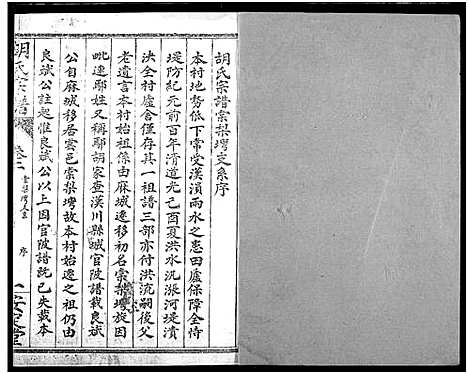 胡氏宗譜棠梨塆支系序
本村地勢低下常受漢溳雨水之患田廬保障全恃
堤防紀元前百年清道光己酉夏洪水汎漲河堤潰
決全村廬舍僅存其一祖譜三部亦付洪流嗣後父
老遺言本村始祖係由麻城遷移初名棠梨塆旋因
毗連鄢姓又稱鄢胡家查漢川縣城官陂譜載良斌
公自麻城移居雲邑棠梨塆故本村始遷之祖仍由
良斌公註起惟良斌公以上因官陂譜既已失載本
胡氏宗譜
卷二
序
一
安定堂